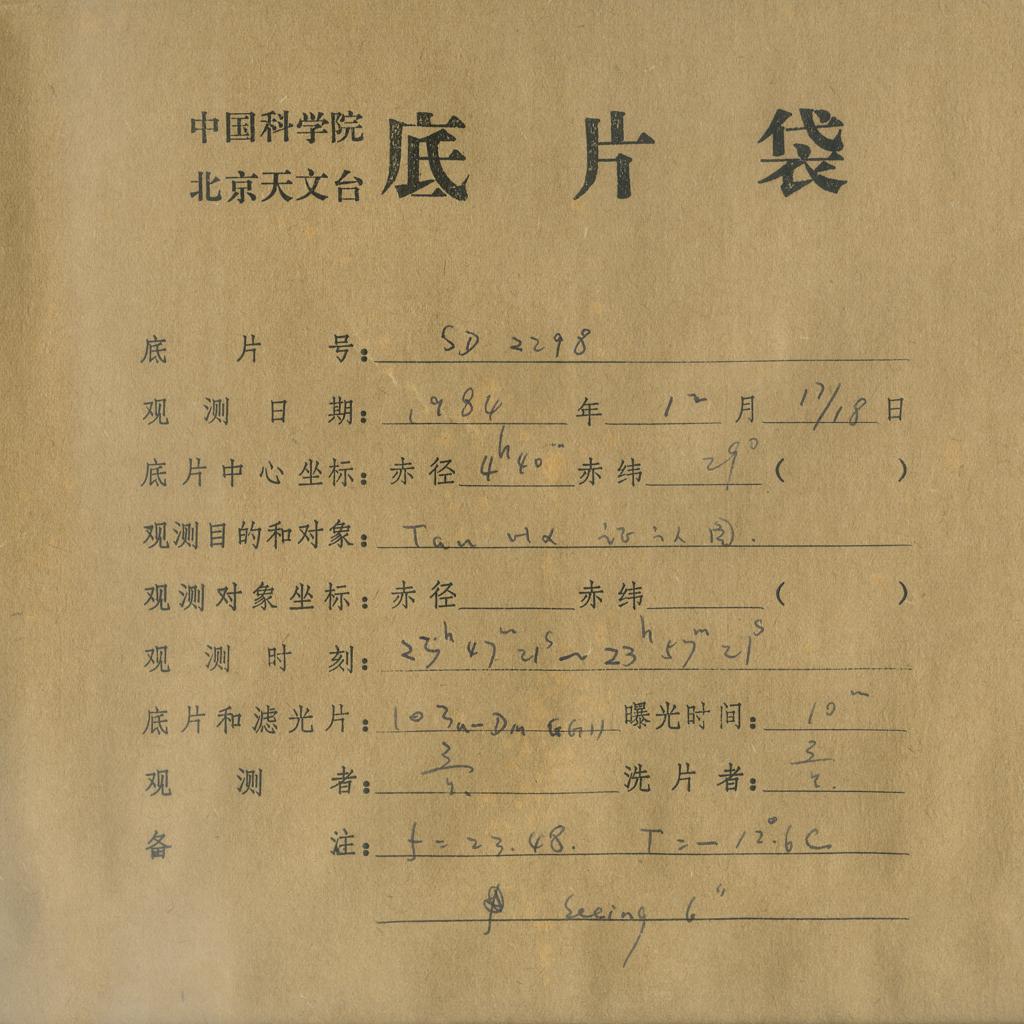 中国科学院
北京天文台
底片袋
底片号: SD 2298
观测日期: 1984 年 12 月 17/18 日
底片中心坐标: 赤径 4h40m 赤纬 29° ( )
观测目的和对象: Tau 证认图.
观测对象坐标: 赤径 赤纬 ( )
观测时刻: 23h 47m 21s ~ 23h 57m 21s
底片和滤光片: 103a-Dm GG11 曝光时间: 10m
观测者: 洗片者:
备注: f = 23.48. T = -12°.6 C
Seeing 6"